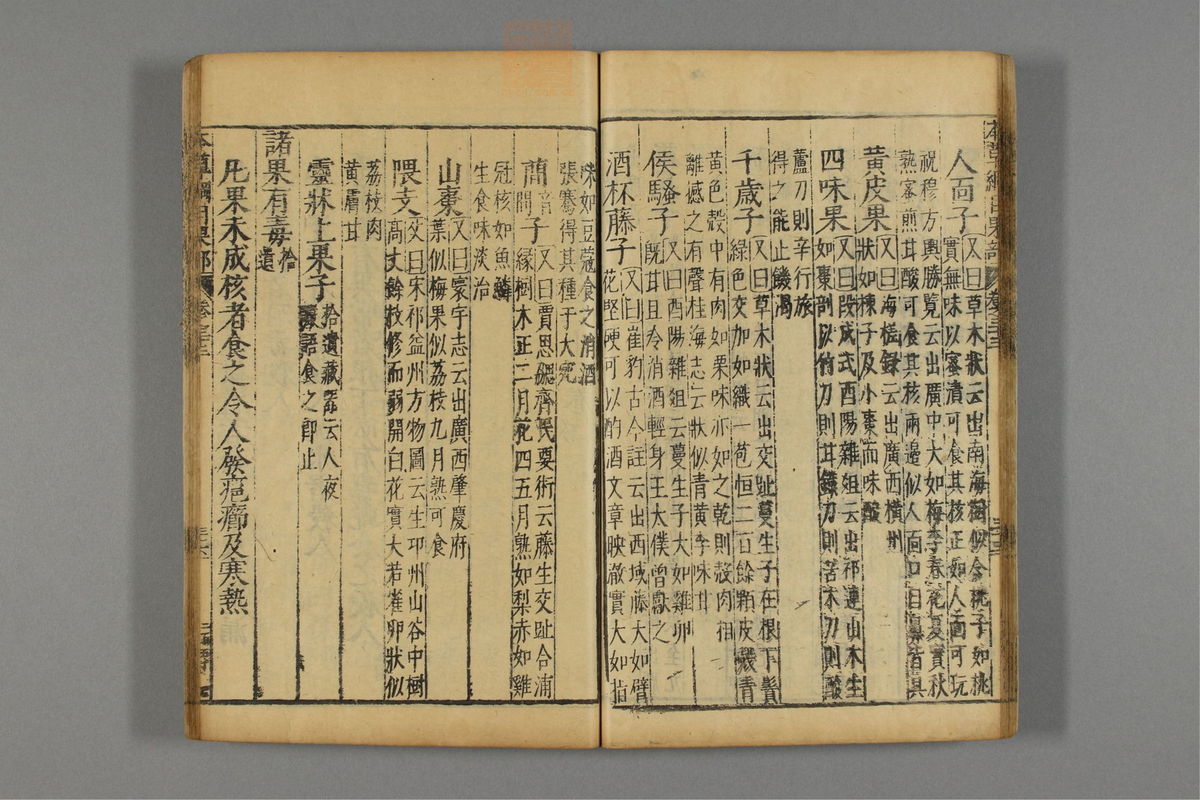 本草綱目果部 卷三十三
人面子又曰草木狀云出南海樹似含桃子如桃
實無味以蜜漬可食其核正如人面可玩
祝穆方輿勝覽云出廣中大如梅李春花夏實秋
熟蜜煎甘酸可食其核兩邊似人面口目鼻皆具
黃皮果又曰海槎錄云出廣西橫州
狀如楝子及小棗而味酸
四味果又曰段成式酉陽雜俎云出祁連山木生
如棗剖以竹刀則甘鐵刀則苦木刀則酸
蘆刀則辛行旅
得之能止饑渴
千歲子又曰草木狀云出交趾蔓生子在根下鬚
綠色交加如織一苞恒二百餘顆皮殼青
黃色殼中有肉如栗味亦如之乾則殼肉相
離撼之有聲桂海志云狀似青黃李味甘
侯騷子又曰酉陽雜俎云蔓生子大如雞卵
既甘且冷消酒輕身王太僕曾獻之
酒杯藤子又曰崔豹古今註云出西域藤大如臂
花堅硬可以酌酒文章映澈實大如指
味如豆蔻食之消酒
張騫得其種于大宛
蕑音間子又曰賈思勰齊民要術云藤生交趾合浦
緣樹木正二月花四五月熟如梨赤如雞
冠核如魚鱗
生食味淡泊
山棗又曰寰宇志云出廣西肇慶府
葉似梅果似荔枝九月熟可食
隈支又曰宋祁益州方物圖云生邛州山谷中樹
高丈餘枝修而弱開白花實大若雀卵狀似
荔枝肉
黃膚甘
靈牀上果子拾遺藏器云人夜
讝語食之即止
諸果有毒拾遺
凡果未成核者食之令人發癰癤及寒熱
本草綱目果部 卷三十三